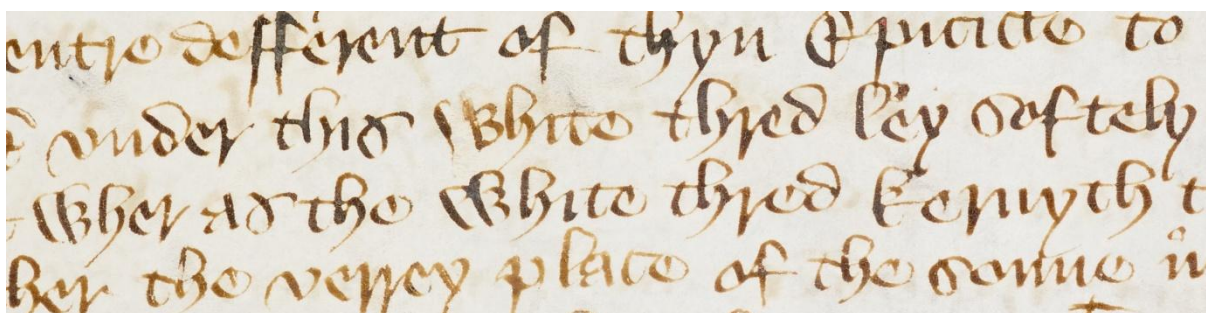 entre defferent of thyn Epicicle to
vnder this white thred ley softely
wher as the white thred kernyth t
her the verrey place of the sonne in